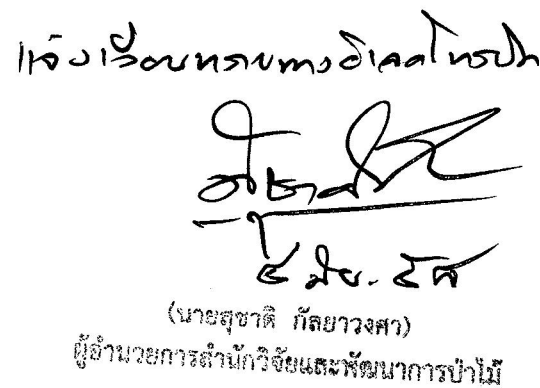 แจ้งเวียนทราบทางอิเลคโทรนิค
๕ มิย. ๕๘
(นายสุชาติ กัลยาวงศา)
ผู้อำนวยการสำนักวิจัยและพัฒนาการป่าไม้